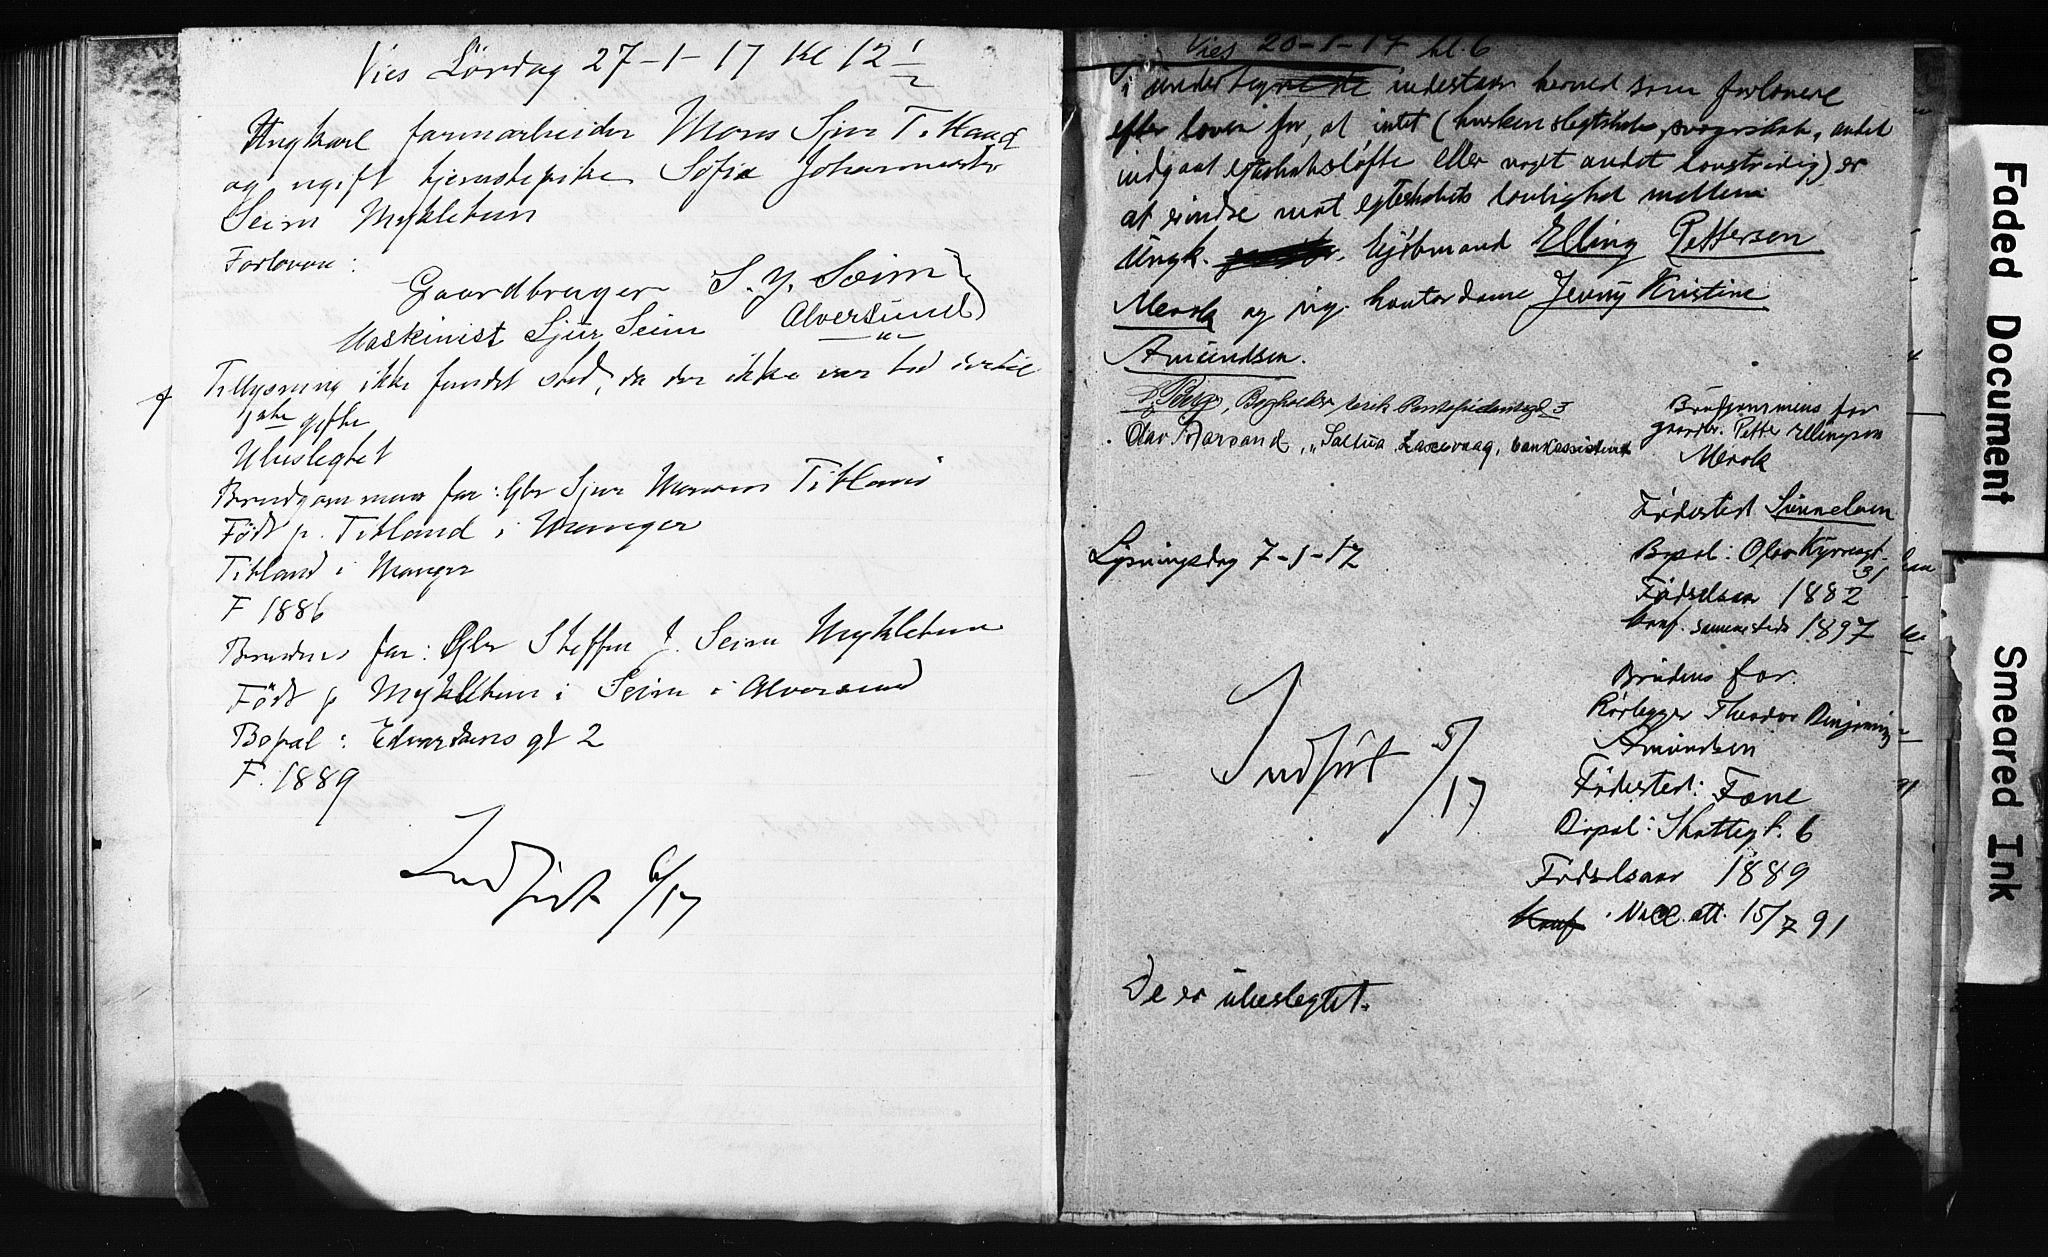 Vies Lördag 27-1-17 Kl 12 1/2
Ungkarl farmarbeider Mons Sjur Titland
og ugift tjenestepike Sofie Johannesdtr
Seim Myklebun
Forlovere:
Gaardbruger S. J. Seim
Alversund
Maskinist Sjur Seim — " —
Tillysning ikke fundet sted, da der ikke var tid dertil
gifte
Ubeslegtet
Brudgommens far: Gbr Sjur Monsen Titland
Född p. Titland i Manger
Titland i Manger
F 1886
Brudens far: Gbr Steffen J. Seim Myklebun
Född p Myklebun i Seim i Alversund
Bopæl: Edvardsens gt 2
F. 1889
Indført 6/17
Vies 20-1-17 kl. 6
Vi undertegnede indestaar herved som forlovere
efter loven for, at intet (hverken slegtskab, svogerskab, andet
indgaat egteskabsløfte eller noget andet lovstridig) er
at erindre mot egteskabets lovlighet mellem
Ungk. kjøbmand Elling Pettersen
Merok og pige kontordame Jenny Kristine
Amundsen.
Berg, Bogholder
Olav Aarsand, Laxevaag, bankassistent
Brudgommens far
gaardbr. Petter Ellingsen
Merok
Fødested Sunnelven
Lysningsdag 7-1-17
Bopæl: Olav Kyrresgt
31
Fødselsaar 1882
konf. sammesteds 1897
Indført 5/17
Brudens far.
Rørlegger Theodor Benjamin
Amundsen
Fødested: Fane
Bopæl: Skottegt. 6
Fødselsaar 1889
Konf. Vacc. att. 15/7 91
De er ubeslegtet.
Faded Document
Smeared Ink